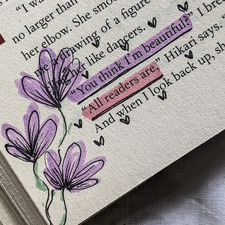 "I wa
no larger than
her elbow. She smo
drawing of a figure
her like dancers.
"You think I'm beautiful?"
"All readers are," Hikari says.
And when I look back up, sh